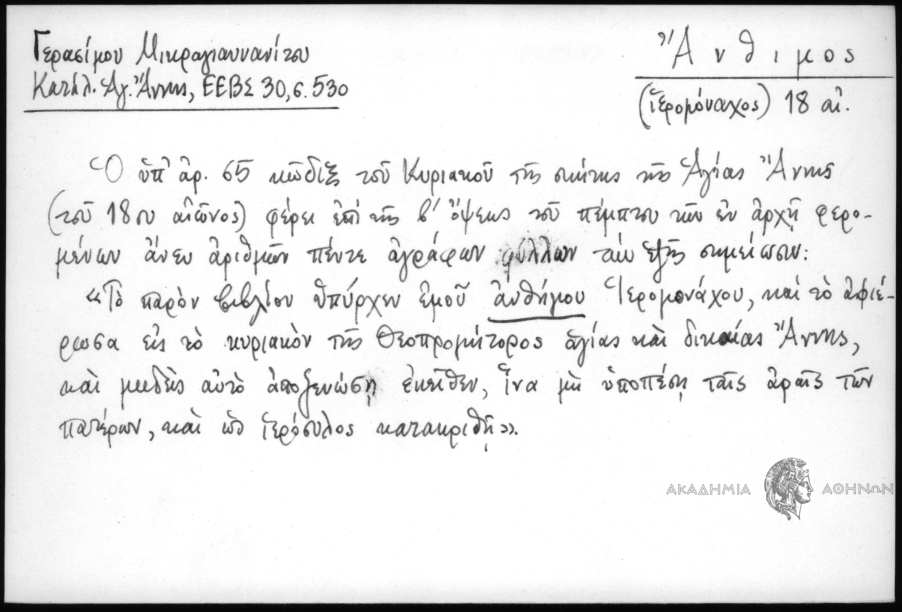 Γερασίμου Μικραγιαννανίτου
Κατάλ. Ἁγ. Ἄννης, ΕΕΒΣ 30, σ. 530
Ἄνθιμος
(ἱερομόναχος) 18 αἰ.
Ὁ ὑπ' ἀρ. 65 κῶδιξ τοῦ Κυριακοῦ τῆς σκήτης τῆς Ἁγίας Ἄννης
(τοῦ 18ου αἰῶνος) φέρει ἐπὶ τῆς β' ὄψεως τοῦ πέμπτου τῶν ἐν ἀρχῇ φερο-
μένων ἄνευ ἀριθμῶν πέντε ἀγράφων φύλλων τὴν ἑξῆς σημείωσιν:
«Τὸ παρὸν βιβλίον ὑπύρχεν ἐμοῦ ἀνθήμου Ἱερομονάχου, καὶ τὸ ἀφιέ-
ρωσα εἰς τὸ κυριακὸν τῆς Θεοπρομήτορος ἁγίας καὶ δικαίας Ἄννης,
καὶ μηδεὶς αὐτὸ ἀποξενώσῃ ἐκεῖθεν, ἵνα μὴ ὑποπέσῃ ταῖς ἀραῖς τῶν
πατέρων, καὶ ὡς ἱερόσυλος κατακριθῇ».
ΑΚΑΔΗΜΙΑ ΑΘΗΝΩΝ